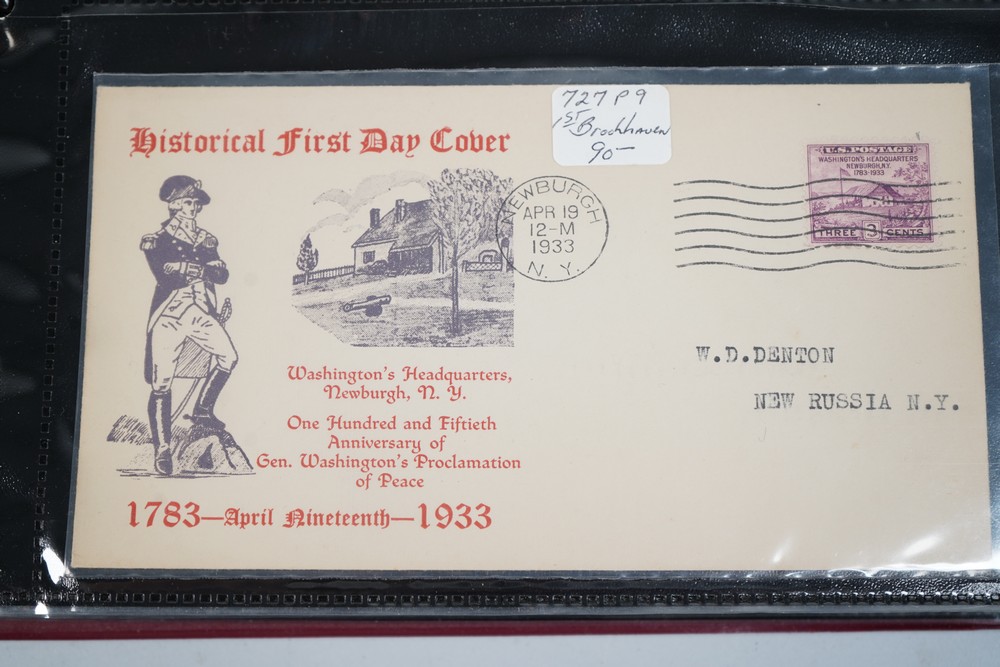 727 P9
1ST Brookhaven
90-
Historical First Day Cover
U.S. POSTAGE
WASHINGTON'S HEADQUARTERS
NEWBURGH, N.Y.
1783-1933
THREE 3 CENTS
NEWBURGH
APR 19
12-M
1933
N.Y.
Washington's Headquarters,
Newburgh, N. Y.
One Hundred and Fiftieth
Anniversary of
Gen. Washington's Proclamation
of Peace
1783—April Nineteenth—1933
W.D.DENTON
NEW RUSSIA N.Y.